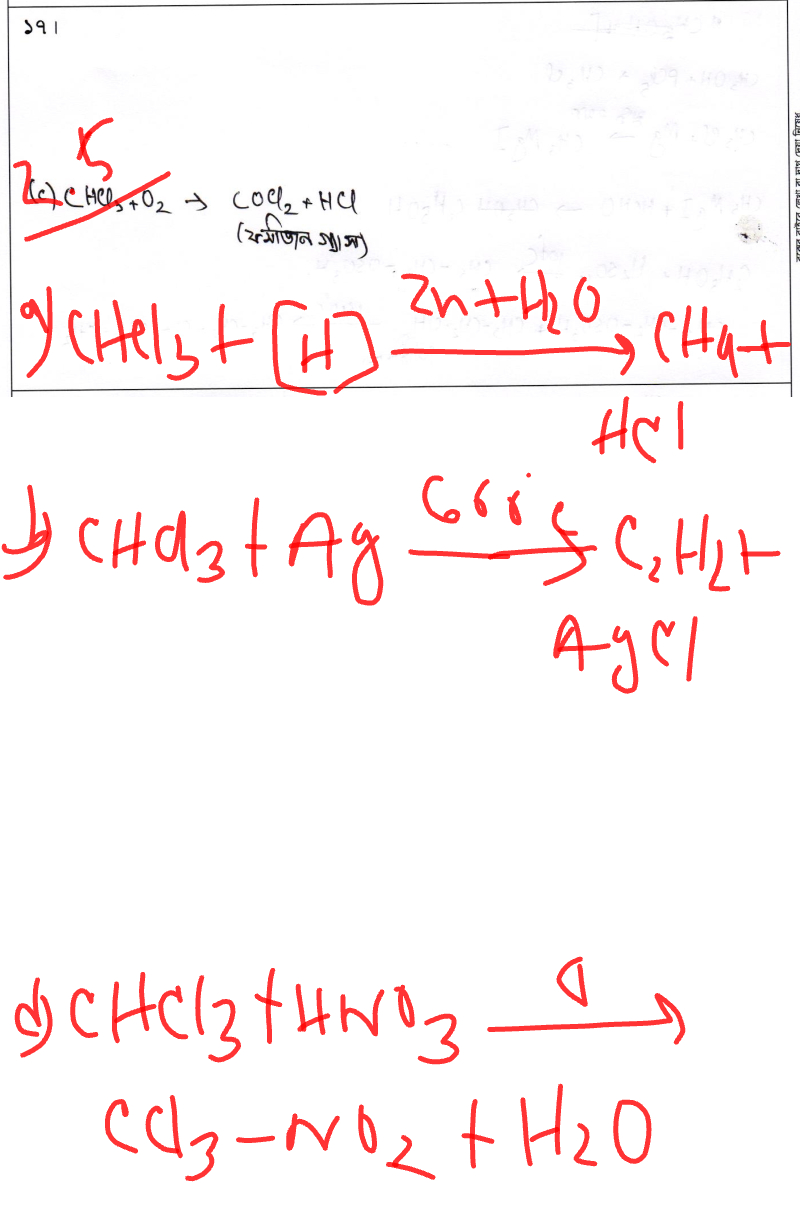 ১৭।
2.5
(c) CHCl₃ + O₂ → COCl₂ + HCl
(ফসজিন গ্যাস)
a) CHCl₃ + [H] Zn + H₂O → CH₄ +
HCl
b) CHCl₃ + Ag → C₂H₂ +
AgCl
d) CHCl₃ + HNO₃ Δ →
CCl₃ – NO₂ + H₂O